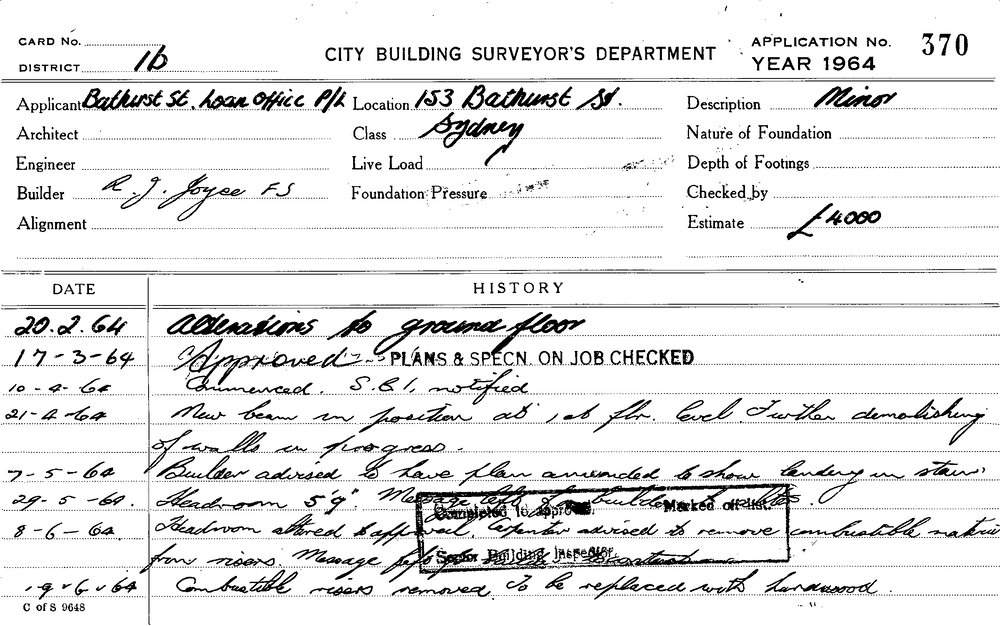 CARD No.
DISTRICT 1b
CITY BUILDING SURVEYOR'S DEPARTMENT
APPLICATION No. 370
YEAR 1964
Applicant Bathurst St. Loan Office P/L Location 153 Bathurst St. Description Minor
Architect Class Sydney Nature of Foundation
Engineer Live Load Depth of Footings
Builder R. J. Joyce FS Foundation Pressure Checked by
Alignment Estimate £4000
DATE HISTORY
20.2.64 Alterations to ground floor
17-3-64 Approved PLANS & SPECN. ON JOB CHECKED
10-4-64 Commenced. S.B.I. notified
21-4-64 New beam in position at 1st flr. level Further demolishing
of walls in progress.
7-5-64 Builder advised to have plan amended to show landing in stairs
29-5-64. Headroom 5'9". Message left for builder
Completed to approval. Marked off list.
8-6-64. Headroom altered to approval. advised to remove combustible
from risers. Message
Senior Building Inspector.
19.6.64 Combustible risers removed. To be replaced with hardwood.
C of S 9648